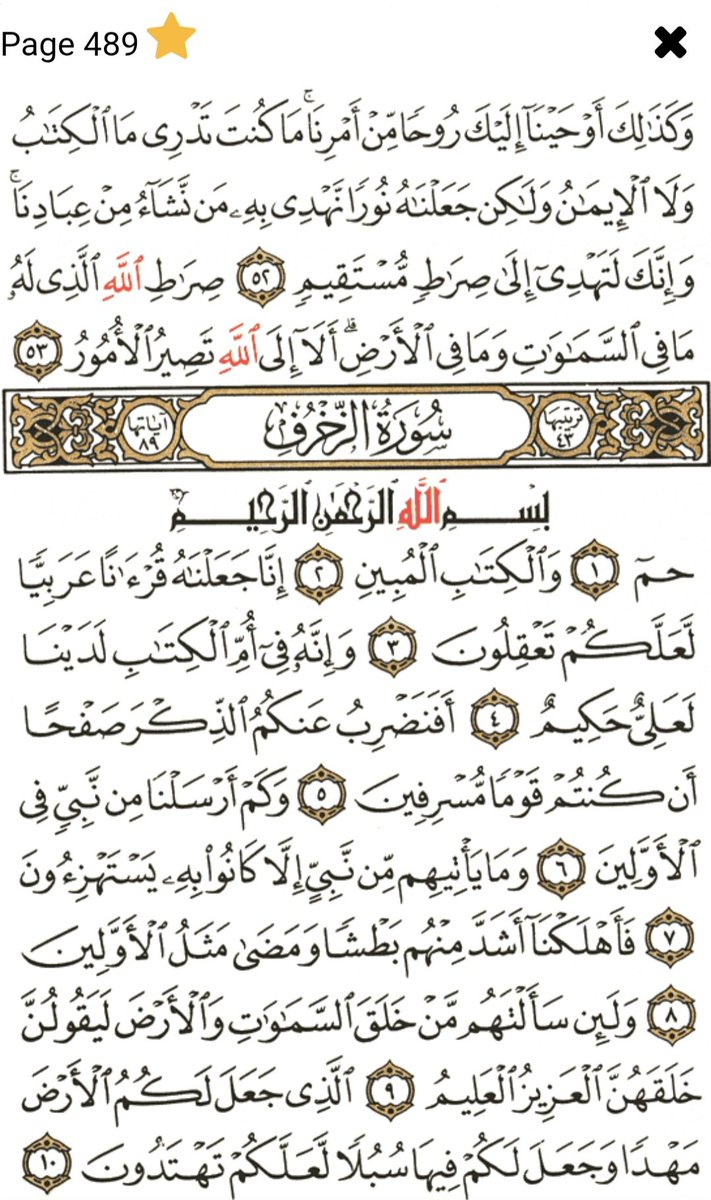 Page 489
وَكَذَٰلِكَ أَوْحَيْنَآ إِلَيْكَ رُوحًا مِّنْ أَمْرِنَا ۚ مَا كُنتَ تَدْرِى مَا ٱلْكِتَـٰبُ
وَلَا ٱلْإِيمَـٰنُ وَلَـٰكِن جَعَلْنَـٰهُ نُورًا نَّهْدِى بِهِۦ مَن نَّشَآءُ مِنْ عِبَادِنَا ۚ
وَإِنَّكَ لَتَهْدِىٓ إِلَىٰ صِرَٰطٍ مُّسْتَقِيمٍ ٥٢ صِرَٰطِ ٱللَّهِ ٱلَّذِى لَهُۥ
مَا فِى ٱلسَّمَـٰوَٰتِ وَمَا فِى ٱلْأَرْضِ ۗ أَلَآ إِلَى ٱللَّهِ تَصِيرُ ٱلْأُمُورُ ٥٣
ترتيبها ٤٣ سُورَةُ الزُّخْرُفِ آياتها ٨٩
بِسْمِ ٱللَّهِ ٱلرَّحْمَـٰنِ ٱلرَّحِيمِ
حمٓ ١ وَٱلْكِتَـٰبِ ٱلْمُبِينِ ٢ إِنَّا جَعَلْنَـٰهُ قُرْءَٰنًا عَرَبِيًّا
لَّعَلَّكُمْ تَعْقِلُونَ ٣ وَإِنَّهُۥ فِىٓ أُمِّ ٱلْكِتَـٰبِ لَدَيْنَا
لَعَلِىٌّ حَكِيمٌ ٤ أَفَنَضْرِبُ عَنكُمُ ٱلذِّكْرَ صَفْحًا
أَن كُنتُمْ قَوْمًا مُّسْرِفِينَ ٥ وَكَمْ أَرْسَلْنَا مِن نَّبِىٍّ فِى
ٱلْأَوَّلِينَ ٦ وَمَا يَأْتِيهِم مِّن نَّبِىٍّ إِلَّا كَانُوا۟ بِهِۦ يَسْتَهْزِءُونَ
٧ فَأَهْلَكْنَآ أَشَدَّ مِنْهُم بَطْشًا وَمَضَىٰ مَثَلُ ٱلْأَوَّلِينَ
٨ وَلَئِن سَأَلْتَهُم مَّنْ خَلَقَ ٱلسَّمَـٰوَٰتِ وَٱلْأَرْضَ لَيَقُولُنَّ
خَلَقَهُنَّ ٱلْعَزِيزُ ٱلْعَلِيمُ ٩ ٱلَّذِى جَعَلَ لَكُمُ ٱلْأَرْضَ
مَهْدًا وَجَعَلَ لَكُمْ فِيهَا سُبُلًا لَّعَلَّكُمْ تَهْتَدُونَ ١٠